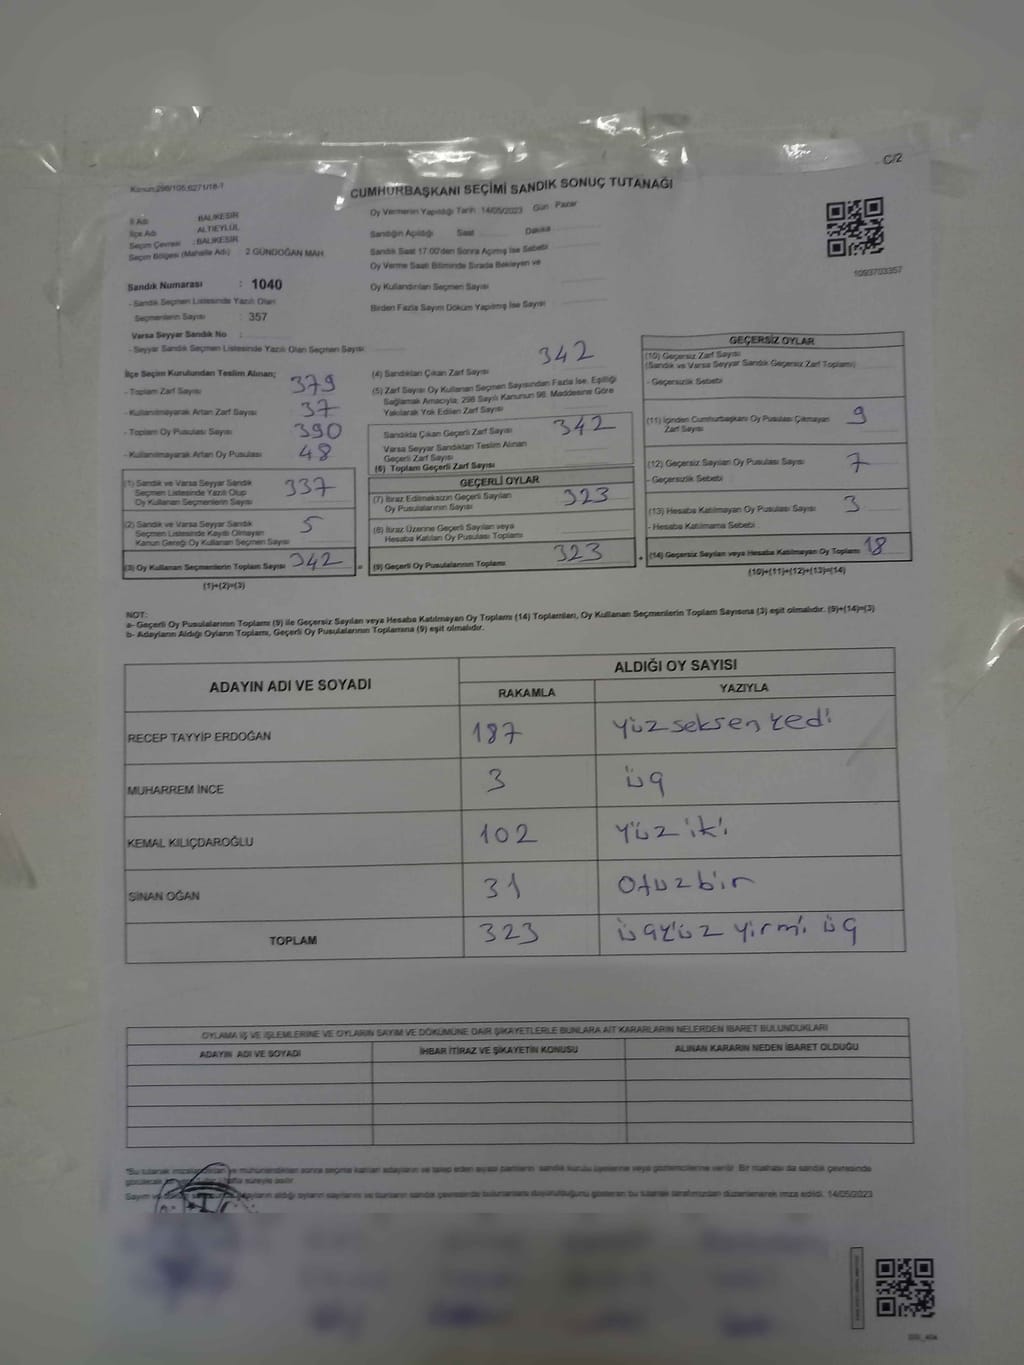 C/2
Kanun:298/105,6271/18-1
CUMHURBAŞKANI SEÇİMİ SANDIK SONUÇ TUTANAĞI
İl Adı BALIKESİR
İlçe Adı ALTIEYLÜL
Seçim Çevresi : BALIKESİR
Seçim Bölgesi (Mahalle Adı) 2 GÜNDOĞAN MAH.
Sandık Numarası : 1040
- Sandık Seçmen Listesinde Yazılı Olan
Seçmenlerin Sayısı : 357
Varsa Seyyar Sandık No :
- Seyyar Sandık Seçmen Listesinde Yazılı Olan Seçmen Sayısı
Oy Vermenin Yapıldığı Tarih 14/05/2023 Gün Pazar
Sandığın Açıldığı Saat Dakika
Sandık Saat 17:00'den Sonra Açımış İse Sebebi
Oy Verme Saati Bitiminde Sırada Bekleyen ve
Oy Kullandırılan Seçmen Sayısı
Birden Fazla Sayım Döküm Yapılmış İse Sayısı
1093703357
İlçe Seçim Kurulundan Teslim Alınan;
- Toplam Zarf Sayısı 379
- Kullanılmayarak Artan Zarf Sayısı 37
- Toplam Oy Pusulası Sayısı 390
- Kullanılmayarak Artan Oy Pusulası 48
(1) Sandık ve Varsa Seyyar Sandık
Seçmen Listesinde Yazılı Olup
Oy Kullanan Seçmenlerin Sayısı 337
(2) Sandık ve Varsa Seyyar Sandık
Seçmen Listesinde Kayıtlı Olmayan
Kanun Gereği Oy Kullanan Seçmen Sayısı 5
(3) Oy Kullanan Seçmenlerin Toplam Sayısı 342
(1)+(2)=(3)
=
(4) Sandıktan Çıkan Zarf Sayısı 342
(5) Zarf Sayısı Oy Kullanan Seçmen Sayısından Fazla İse, Eşitliği
Sağlamak Amacıyla; 298 Sayılı Kanunun 98. Maddesine Göre
Yakılarak Yok Edilen Zarf Sayısı
Sandıkta Çıkan Geçerli Zarf Sayısı 342
Varsa Seyyar Sandıktan Teslim Alınan
Geçerli Zarf Sayısı
(6) Toplam Geçerli Zarf Sayısı
GEÇERLİ OYLAR
(7) İtiraz Edilmeksizin Geçerli Sayılan
Oy Pusulalarının Sayısı 323
(8) İtiraz Üzerine Geçerli Sayılan veya
Hesaba Katılan Oy Pusulası Toplamı
(9) Geçerli Oy Pusulalarının Toplamı 323
+
GEÇERSİZ OYLAR
(10) Geçersiz Zarf Sayısı
(Sandık ve Varsa Seyyar Sandık Geçersiz Zarf Toplamı)
- Geçersizlik Sebebi
(11) İçinden Cumhurbaşkanı Oy Pusulası Çıkmayan
Zarf Sayısı 9
(12) Geçersiz Sayılan Oy Pusulası Sayısı 7
- Geçersizlik Sebebi
(13) Hesaba Katılmayan Oy Pusulası Sayısı 3
- Hesaba Katılmama Sebebi
(14) Geçersiz Sayılan veya Hesaba Katılmayan Oy Toplamı 18
(10)+(11)+(12)+(13)=(14)
NOT:
a- Geçerli Oy Pusulalarının Toplamı (9) ile Geçersiz Sayılan veya Hesaba Katılmayan Oy Toplamı (14) Toplamları, Oy Kullanan Seçmenlerin Toplam Sayısına (3) eşit olmalıdır. (9)+(14)=(3)
b- Adayların Aldığı Oyların Toplamı, Geçerli Oy Pusulalarının Toplamına (9) eşit olmalıdır.
ADAYIN ADI VE SOYADI ALDIĞI OY SAYISI
RAKAMLA YAZIYLA
RECEP TAYYİP ERDOĞAN 187 Yüz seksen yedi
MUHARREM İNCE 3 üç
KEMAL KILIÇDAROĞLU 102 Yüz iki
SİNAN OĞAN 31 Otuzbir
TOPLAM 323 üçyüz yirmi üç
OYLAMA İŞ VE İŞLEMLERİNE VE OYLARIN SAYIM VE DÖKÜMÜNE DAİR ŞİKAYETLERLE BUNLARA AİT KARARLARIN NELERDEN İBARET BULUNDUKLARI
ADAYIN ADI VE SOYADI İHBAR İTİRAZ VE ŞİKAYETİN KONUSU ALINAN KARARIN NEDEN İBARET OLDUĞU
"Bu tutanak imzalandıktan ve mühürlendikten sonra seçime katılan adayların ve talep eden siyasi partilerin sandık kurulu üyelerine veya gözlemcilerine verilir. Bir nüshası da sandık çevresinde
görülecek süreyle asılır
Sayım ve döküm adayların aldığı oyların sayılarını ve bunların sandık çevresinde bulunanlara duyurulduğunu gösteren bu tutanak tarafımızdan düzenlenerek imza edildi. 14/05/2023